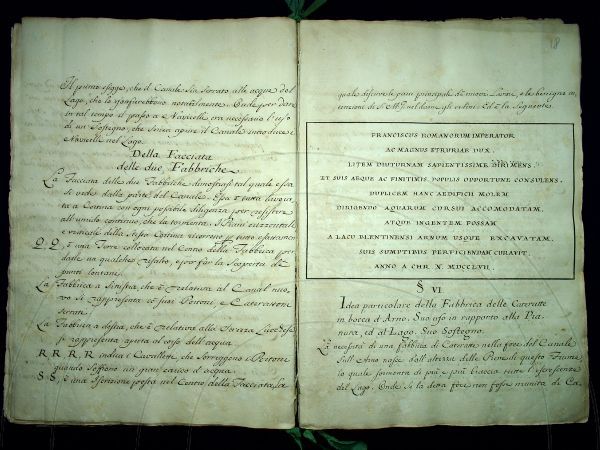 Il primo esigge, che il Canale sia serrato alle acque del
Lago, che lo gonfierebbono notabilmente. Onde per dare
in tal tempo il passo a Navicelli era necessario l'uso
di un Sostegno, che senza aprire il Canale introducesse
Navicelli nel Lago.
Della Facciata
delle due Fabbriche
La Facciata delle due Fabbriche dimostrasi tal quale essa
si vede dalla parte del Canale. Essa è tutta lavora
ta a Cortina con ogni possibile diligenza per resistere
all'umido continuo, che la tormenta. I Piani orizzontali
e verticali della stessa Cortina ricorrono per tutto esattamente
Q. Q. è una Torre collocata nel Centro della Fabbrica per
darle un qualche risalto, e per far la scoperta de'
punti lontani.
La Fabbrica a sinistra, che è relativa al Canal nuo
vo si rappresenta co' suoi Portoni, e Cateratte
serrate.
La Fabbrica a destra, che è relativa alla Serezza Lucchese
si rappresenta aperta al corso dell'acqua
R R R R indica i Cavalletti, che sorreggono i Portoni
quando soffrono un gran carico d'acqua.
S S, è una Iscrizione posta nel Centro della Facciata, la
18
quale discorre le parti principali del Lavoro, e la benigna in
tenzioni di S. M. nel darne gli ordini. Ed è la seguente
FRANCISCUS ROMANORUM IMPERATOR
AC MAGNUS ETRURIAE DUX.
LITEM DIUTURNAM SAPIENTISSIME DIRIMENS.
ET SUIS AEQUE AC FINITIMIS, POPULIS OPPORTUNE CONSULENS,
DUPLICEM HANC AEDIFICII MOLEM
DIRIGENDO AQUARUM CURSUI ACCOMODATAM,
ATQUE INGENTEM FOSSAM
A LACU BLENTINENSI ARNUM USQUE EXCAVATAM,
SUIS SUMPTIBUS PERFICIENDAM CURAVIT,
ANNO A CHR. N. MDCCLVII.
§ VI
Idea particolare della Fabbrica delle Cateratte
in bocca d'Arno. Suo uso in rapporto alla Pia
nura, ed al Lago. Suo Sostegno.
La necessità di una fabbrica di Cateratte nella foce del Canale
sull'Arno nasce dall'altezza delle Piene di questo Fiume
lo quale sormonta di più e più braccia tutte l'escrescenze
del Lago. Onde se la detta foce non fosse munita di Ca,